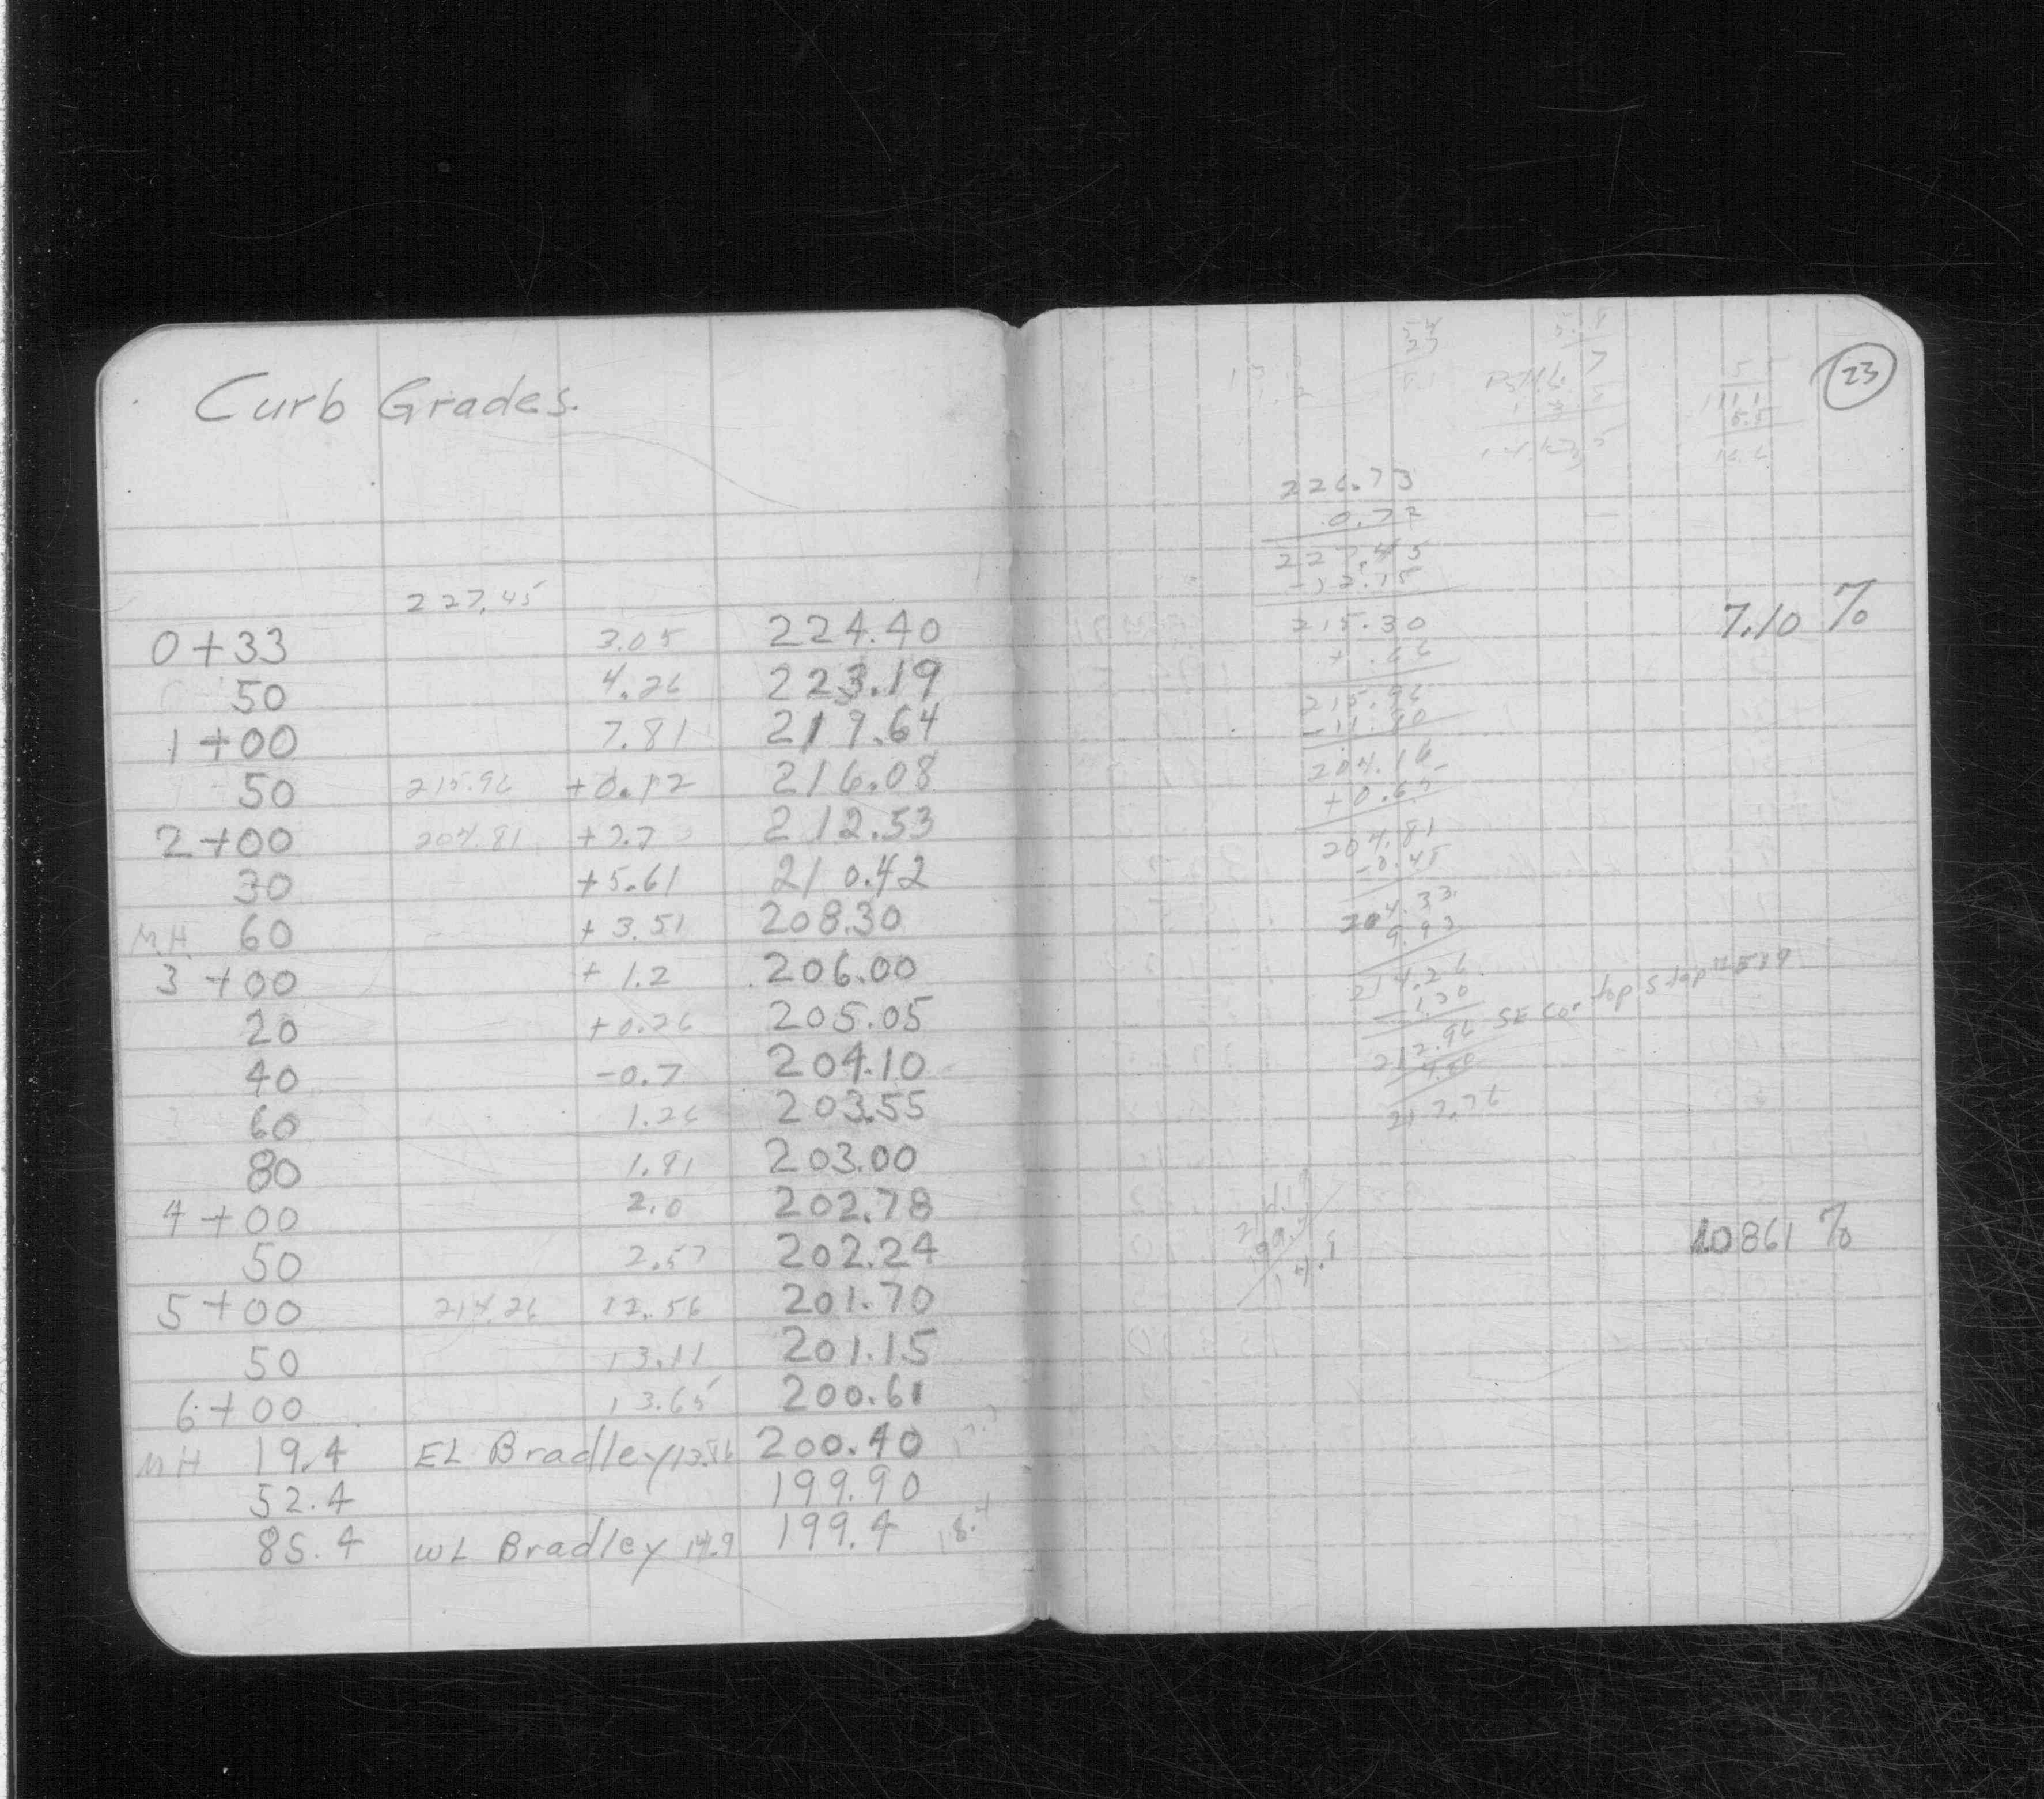 Curb Grades.
227.45
0+33 3.05 224.40
50 4.26 223.19
1+00 7.81 219.64
50 215.96 +0.12 216.08
2+00 204.81 +7.7 212.53
30 +5.61 210.42
M.H. 60 +3.51 208.30
3+00 +1.2 206.00
20 +0.26 205.05
40 -0.7 204.10
60 1.26 203.55
80 1.81 203.00
4+00 2.0 202.78
50 2.57 202.24
5+00 214.26 12.56 201.70
50 13.11 201.15
6+00 13.65 200.61
MH 19.4 EL Bradley 13.86 200.40
52.4 199.90
85.4 WL Bradley 14.9 199.4 18.4
23
226.73
0.72
227.45
-12.15
215.30
+ .66
215.96
-11.80
204.16
+0.65
204.81
204.33
9.93
214.26
1.30
212.96 SE Cor top S top
217.76
7.10 %
.0861 %